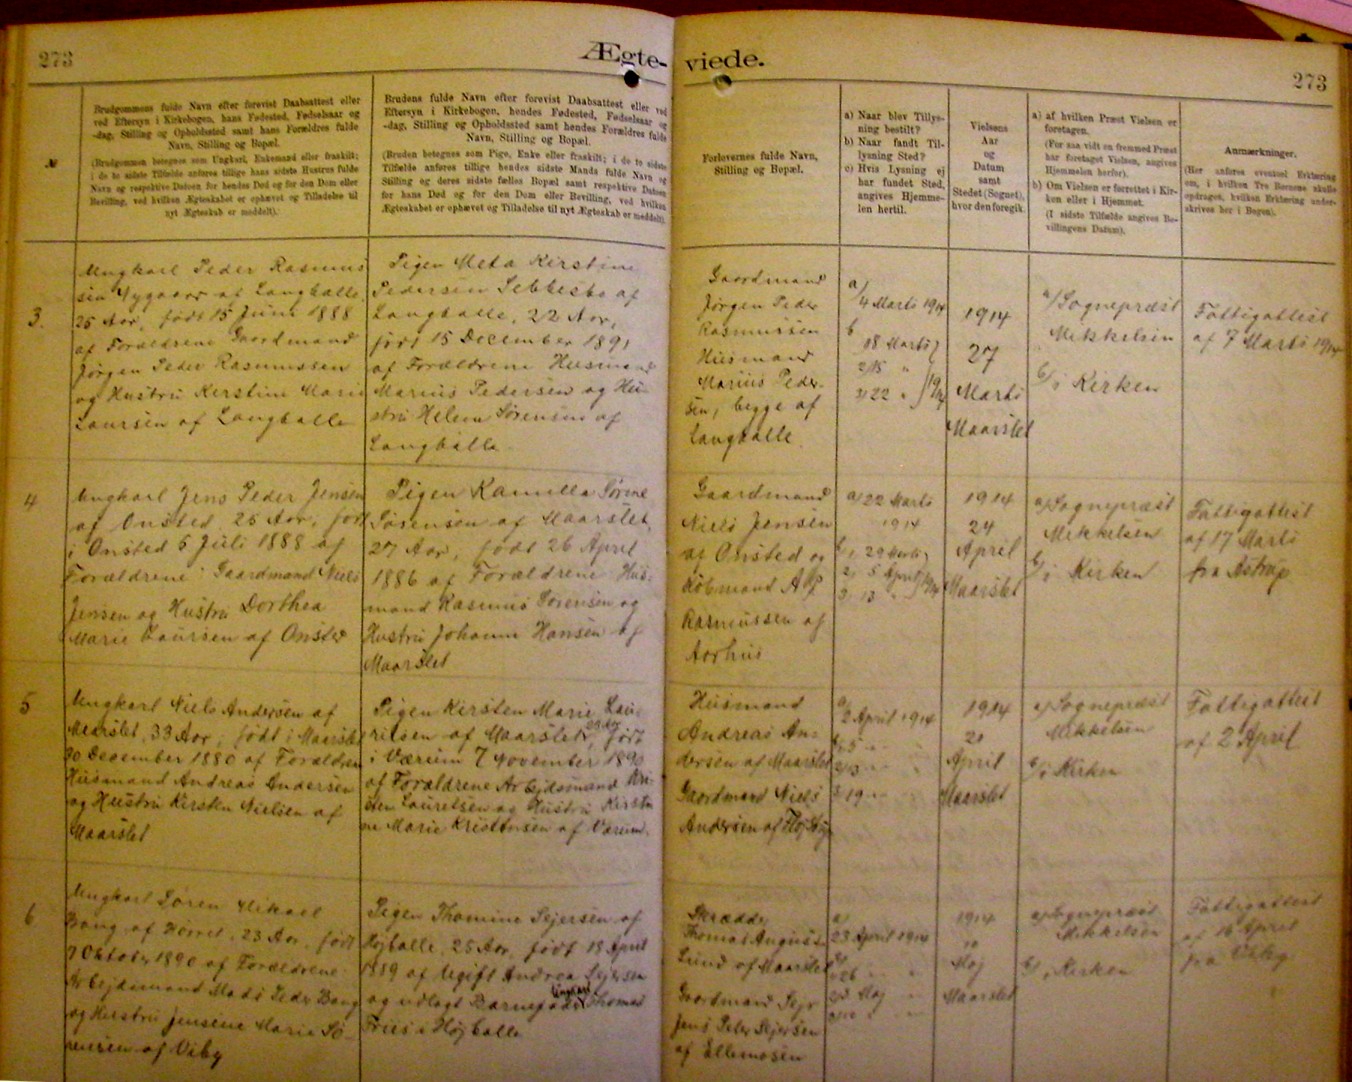 273
Ægte-
viede.
273
№
Brudgommens fulde Navn efter forevist Daabsattest eller
ved Eftersyn i Kirkebogen, hans Fødested, Fødselsaar og
-dag, Stilling og Opholdssted samt hans Forældres fulde
Navn, Stilling og Bopæl.
(Brudgommen betegnes som Ungkarl, Enkemand eller fraskilt;
i de to sidste Tilfælde anføres tillige hans sidste Hustrus fulde
Navn og respektive Datoen for hendes Død og for den Dom eller
Bevilling, ved hvilken Ægteskabet er ophævet og Tilladelse til
nyt Ægteskab er meddelt).
Brudens fulde Navn efter forevist Daabsattest eller ved
Eftersyn i Kirkebogen, hendes Fødested, Fødselsaar og
-dag, Stilling og Opholdssted samt hendes Forældres fulde
Navn, Stilling og Bopæl.
(Bruden betegnes som Pige, Enke eller fraskilt; i de to sidste
Tilfælde anføres tillige hendes sidste Mands fulde Navn og
Stilling og deres sidste fælles Bopæl samt respektive Datoen
for hans Død og for den Dom eller Bevilling, ved hvilken
Ægteskabet er ophævet og Tilladelse til nyt Ægteskab er meddelt).
Forlovernes fulde Navn,
Stilling og Bopæl.
a) Naar blev Tillys-
ning bestilt?
b) Naar fandt Til-
lysning Sted?
c) Hvis Lysning ej
har fundet Sted,
angives Hjemme-
len hertil.
Vielsens
Aar
og
Datum
samt
Stedet (Sognet),
hvor den foregik.
a) af hvilken Præst Vielsen er
foretagen.
(For saa vidt en fremmed Præst
har foretaget Vielsen, angives
Hjemmelen herfor).
b) Om Vielsen er forrettet i Kir-
ken eller i Hjemmet.
(I sidste Tilfælde angives Be-
villingens Datum).
Anmærkninger.
(Her anføres eventuel Erklæring
om, i hvilken Tro Børnene skulle
opdrages, hvilken Erklæring under-
skrives her i Bogen).
3.
Ungkarl Peder Rasmus
sen Nygaard af Langballe,
25 Aar, født 15 Juni 1888
af Forældrene Gaardmand
Jørgen Peder Rasmussen
og Hustru Kirstine Marie
Laursen af Langballe
Pigen Meta Kirstine
Pedersen af
Langballe, 22 Aar,
født 15 December 1891
af Forældrene Husmand
Marius Pedersen og Hu-
stru Helene Sørensen af
Langballe
Gaardmand
Jørgen Peder
Rasmussen
Husmand
Marius Peder-
sen, begge af
Langballe.
a/
4 Marts 1914
b
18 Marts
2/15 "
3/22 "
1914
27
Marts
Maarslet
a/ Sognepræst
Mikkelsen
b/ i Kirken
Fattigattest
af 7 Marts 1914
4
Ungkarl Jens Peder Jensen
af Onsted, 25 Aar, født
i Onsted 6 Juli 1888 af
Forældrene Gaardmand Niels
Jensen og Hustru Dorthea
Marie Laursen af Onsted
Pigen Kamilla Sørine
Sørensen af Maarslet,
27 Aar, født 26 April
1886 af Forældrene Hus-
mand Rasmus Sørensen og
Hustru Johanne Hansen af
Maarslet
Gaardmand
Niels Jensen
af Onsted og
Købmand A P
Rasmussen af
Aarhus
a/ 22 Marts
1914
b/ 1, 29 Marts
2, 5 April
3, 13 "
1914
24
April
Maarslet
a/ Sognepræst
Mikkelsen
b/ i Kirken
Fattigattest
af 17 Marts
fra Astrup
5
Ungkarl Niels Andersen af
Maarslet, 33 Aar, født i Maarslet
30 December 1880 af Forældrene
Husmand Andreas Andersen
og Hustru Kirsten Nielsen af
Maarslet
Pigen Kirsten Marie Lau-
ritsen af Maarslet, 23 Aar, født
i Værum 7 November 1890
af Forældrene Arbejdsmand Kri-
sten Lauretsen og Hustru Kirsti-
ne Marie Kristensen af Værum.
Husmand
Andreas An-
dersen af Maarslet
Gaardmand Niels
Andersen af
a/
2 April 1914
b/ 5 "
2/13 "
3/19 "
1914
20
April
Maarslet
a/ Sognepræst
Mikkelsen
b/ i Kirken
Fattigattest
af 2 April
6
Ungkarl Søren Mikael
Bang af Hørret, 23 Aar, født
7 Oktober 1890 af Forældrene
Arbejdsmand Mads Peder Bang
og Hustru Jensine Marie Sø-
rensen af Viby
Pigen Thomine Sejersen af
Højballe, 25 Aar, født 18 April
1889 af Ugift Andrea Sejersen
og udlagt Barnefader Ungkarl Thomas
Friis i Højballe
Skrædder
Thomas August
Lund af Maarslet
Gaardmand Sejr
Jens Peter Sejersen
af Ellemosen
a/
23 April 1914
b/
1/26 " "
2/3 Maj "
3/10 " "
1914
10
Maj
Maarslet
a/ Sognepræst
Mikkelsen
b/ i Kirken
Fattigattest
af 16 April
fra Viby